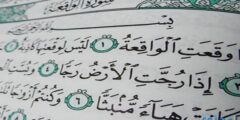 سُورَةُ الوَاقِعَةِ
بِسْمِ
وَقَعَتِ ٱلْوَاقِعَةُ ١ لَيْسَ لِوَقْعَتِهَا كَاذِبَةٌ
٣ إِذَا رُجَّتِ ٱلْأَرْضُ رَجًّا ٤
هَبَآءً مُّنۢبَثًّا ٦ وَكُنتُمْ أَزْوَٰجًا